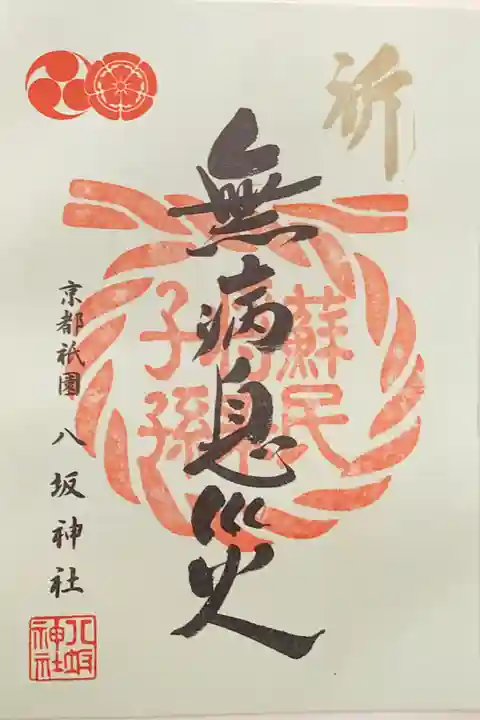 祈
蘇民
将来
子孫
無病息災
京都祇園 八坂神社
八坂
神社